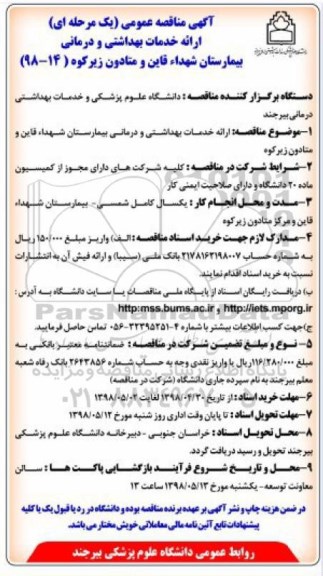 آگهی مناقصه عمومی (یک مرحله ای)
ارائه خدمات بهداشتی و درمانی
بیمارستان شهداء قاین و متادون زیرکوه ( ۱۴-۹۸)
دستگاه برگزار کننده مناقصه : دانشگاه علوم پزشکی و خدمات بهداشتی
درمانی بیرجند
۱-موضوع مناقصه: ارائه خدمات بهداشتی و درمانی بیمارستان شهداء قاین و
متادون زیرکوه
۲-شرایط شرکت در مناقصه : کلیه شرکت های دارای مجوز از کمیسیون
ماده ۲۰ دانشگاه و دارای صلاحیت ایمنی کار
۳-مدت و محل انجام کار : یکسال کامل شمسی- بیمارستان شهداء
قاین و مرکز متادون زیرکوه
۴-مدارک لازم جهت خرید اسناد مناقصه : الف) واریز مبلغ ۱۵۰/۰۰۰ ریال
به شماره حساب ۲۱۷۸۱۶۳۱۹۸۰۰۷ بانک ملی (سیبا) و ارائه فیش آن به انتشارات
نسبت به خرید اسناد اقدام نمایند.
ب) دریافت رایگان اسناد از پایگاه ملی مناقصات یا سایت دانشگاه به آدرس :
http://iets.mporg.ir و http:mss.bums.ac.ir
ج)جهت کسب اطلاعات بیشتر با شماره ۴-۳۲۳۹۵۲۵۱-۰۵۶ تماس حاصل فرمایید.
۵- نوع و مبلغ تضمین شرکت در مناقصه : ضمانتنامه معتبر بانکی به
مبلغ ۱۱۶/۲۸۰/۰۰۰ریال یا واریز نقدی وجه به حساب شماره ۲۶۴۳۸۵۶ بانک رفاه شعبه
معلم بیرجند به نام سپرده جاری دانشگاه (شرکت در مناقصه)
۶-مهلت خرید اسناد : از تاریخ ۱۳۹۸/۰۴/۳۰ لغایت ۱۳۹۸/۰۵/۰۲
۷-مهلت تحویل اسناد : تا پایان وقت اداری روز شنبه مورخ ۱۳۹۸/۰۵/۱۲
۸-محل تحویل اسناد : خراسان جنوبی - دبیرخانه دانشگاه علوم پزشکی
بیرجند تحویل و رسید دریافت گردد.
۹-محل و تاریخ شروع فرآیند بازگشایی پاکت ها : سالن
معاونت توسعه- یکشنبه مورخ ۱۳۹۸/۰۵/۱۳ ساعت ۱۳
در ضمن هزینه چاپ و نشر آگهی بر عهده برنده مناقصه بوده و دانشگاه در رد یا قبول یک یا کلیه
پیشنهادات تابع آئین نامه مالی معاملاتی خویش مختار می باشد.
روابط عمومی دانشگاه علوم پزشکی بیرجند